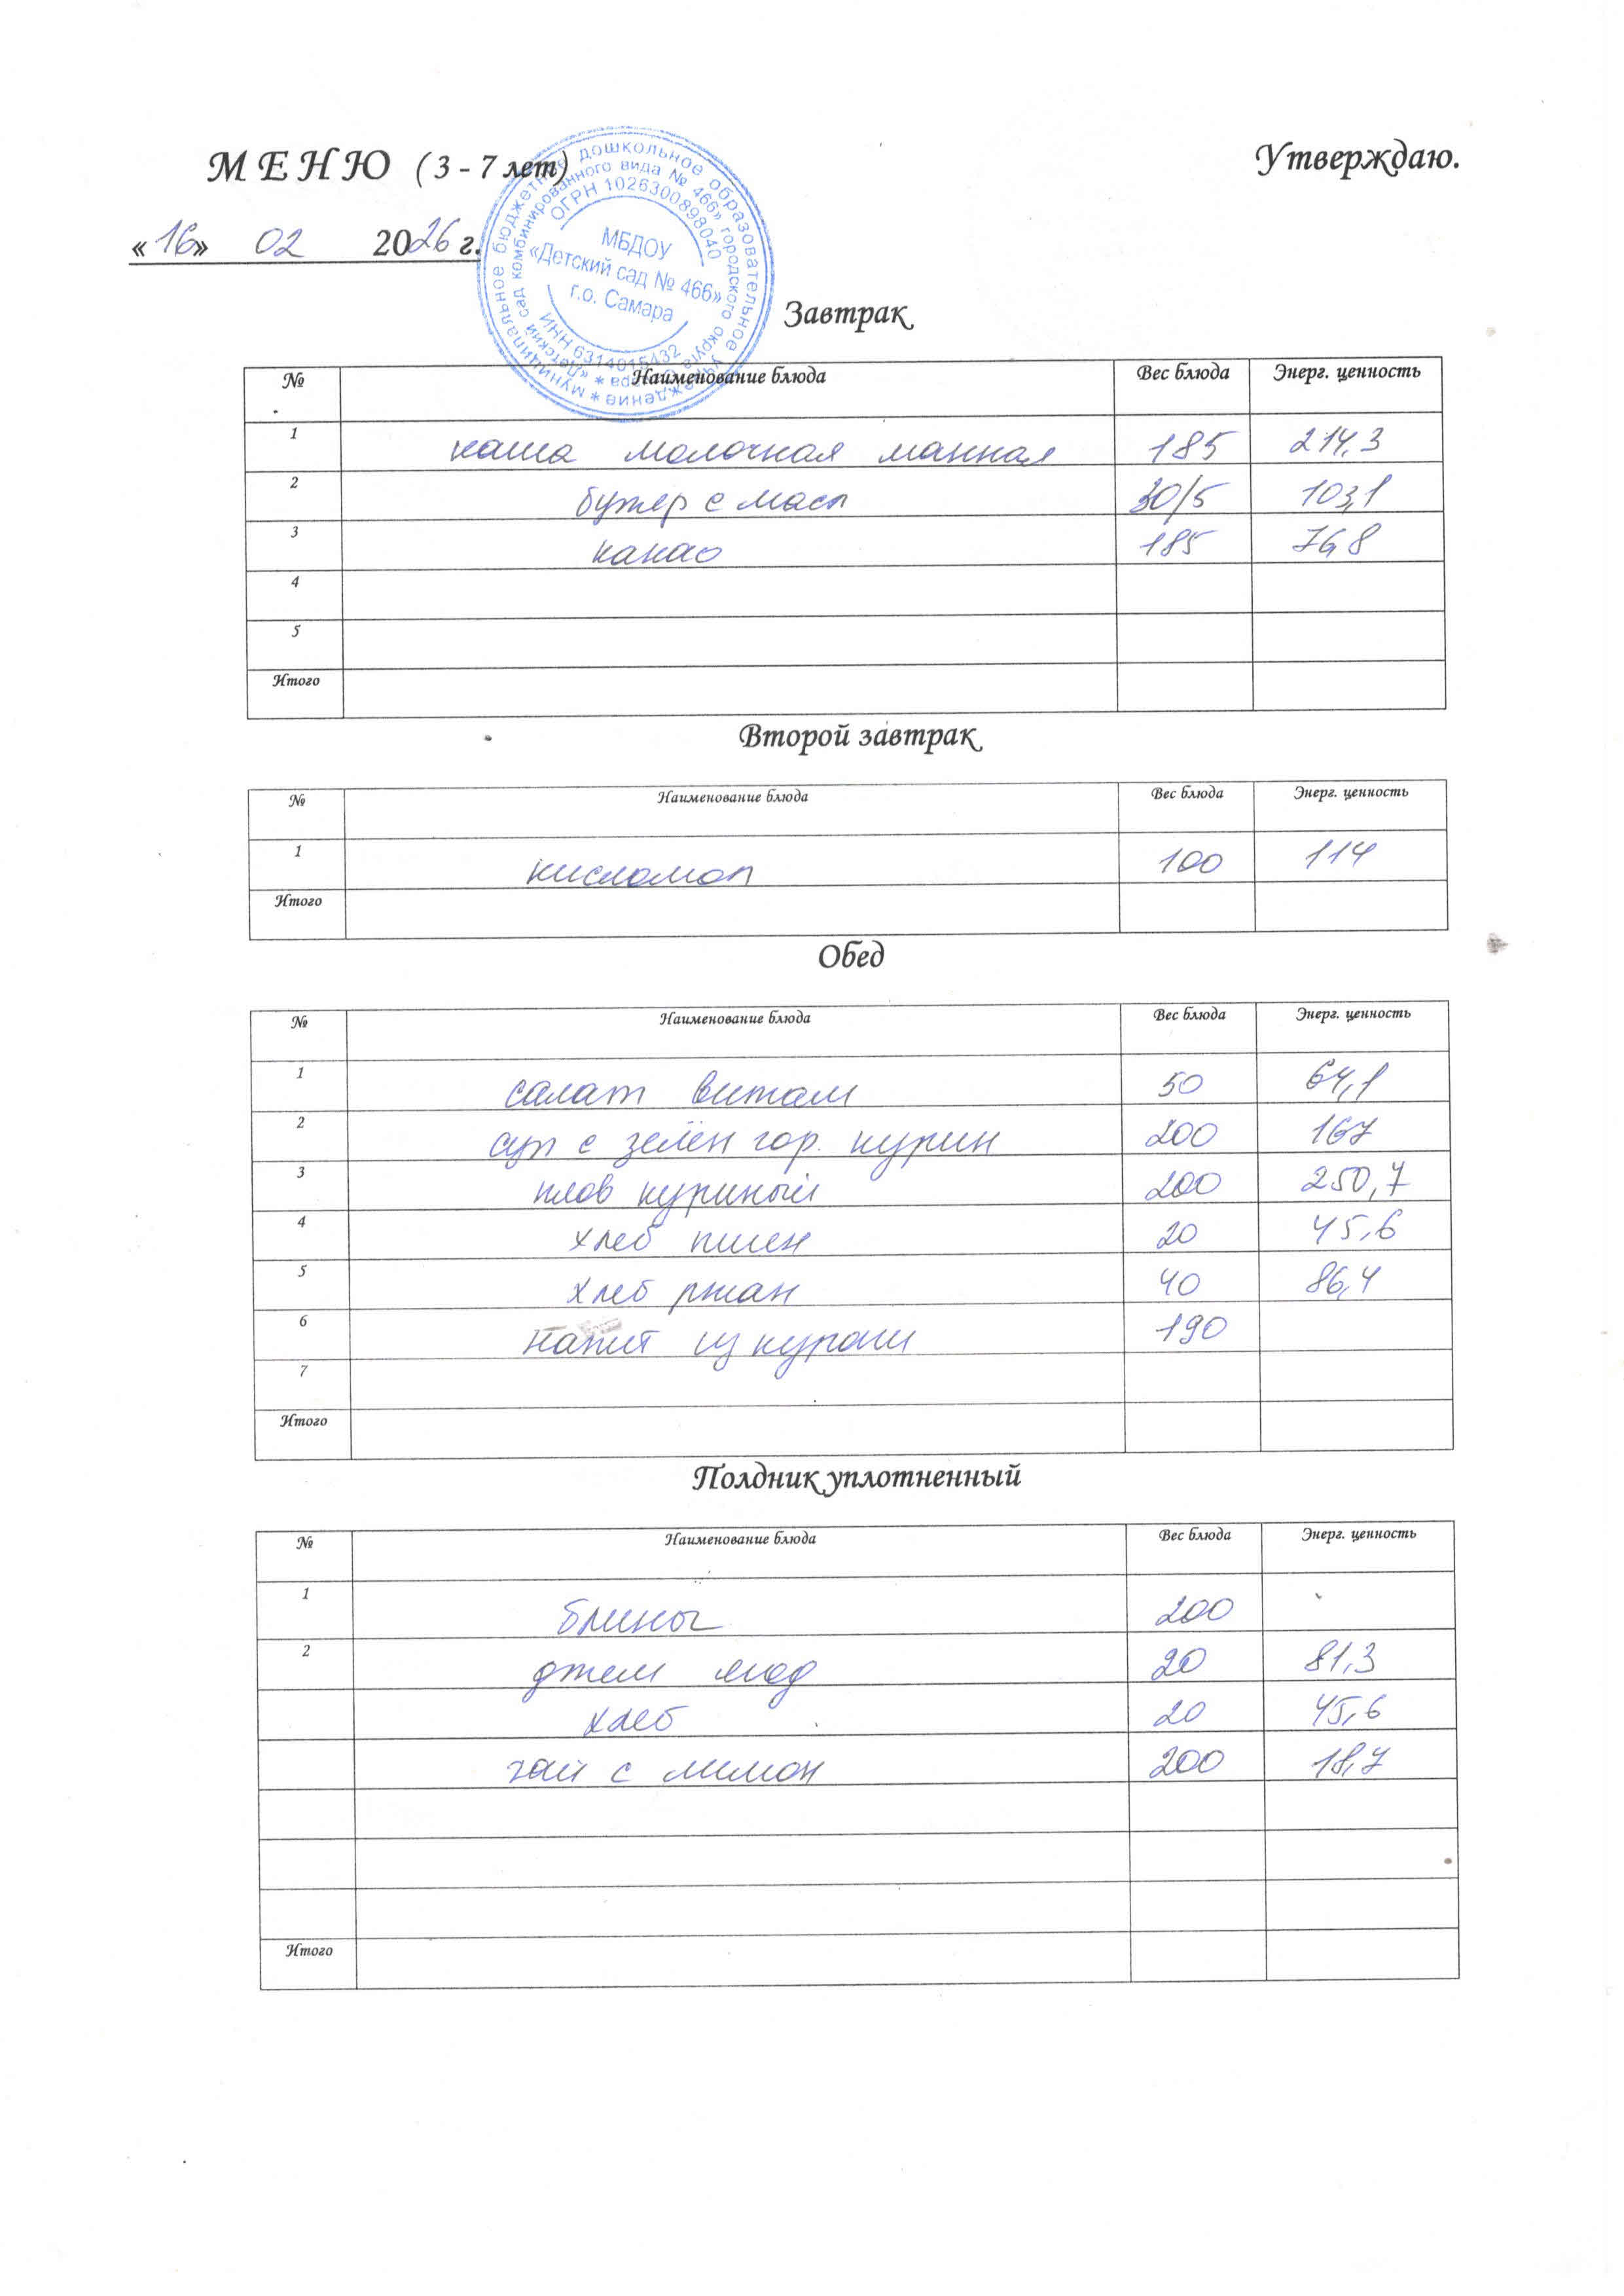 МЕНЮ (3 - 7 лет)
Утверждаю.
«16» 02 2026 г.
муниципальное бюджетное дошкольное образовательное учреждение
«Детский сад комбинированного вида № 466» городского округа
ОГРН 1026300898040
МБДОУ
«Детский сад № 466»
г.о. Самара
ИНН 6314015432
Завтрак
№ Наименование блюда Вес блюда Энерг. ценность
1 каша молочная манная 185 214,3
2 бутер с масл 30/5 103,1
3 какао 185 76,8
4
5
Итого
Второй завтрак
№ Наименование блюда Вес блюда Энерг. ценность
1 кисломол 100 114
Итого
Обед
№ Наименование блюда Вес блюда Энерг. ценность
1 салат витам 50 64,1
2 суп с зелён гор. курин 200 167
3 плов куриный 200 250,7
4 хлеб пшен 20 45,6
5 хлеб ржан 40 86,4
6 напит из кураги 190
7
Итого
Полдник уплотненный
№ Наименование блюда Вес блюда Энерг. ценность
1 блины 200
2 джем ягод 20 81,3
хлеб 20 45,6
чай с лимон 200 18,7
Итого